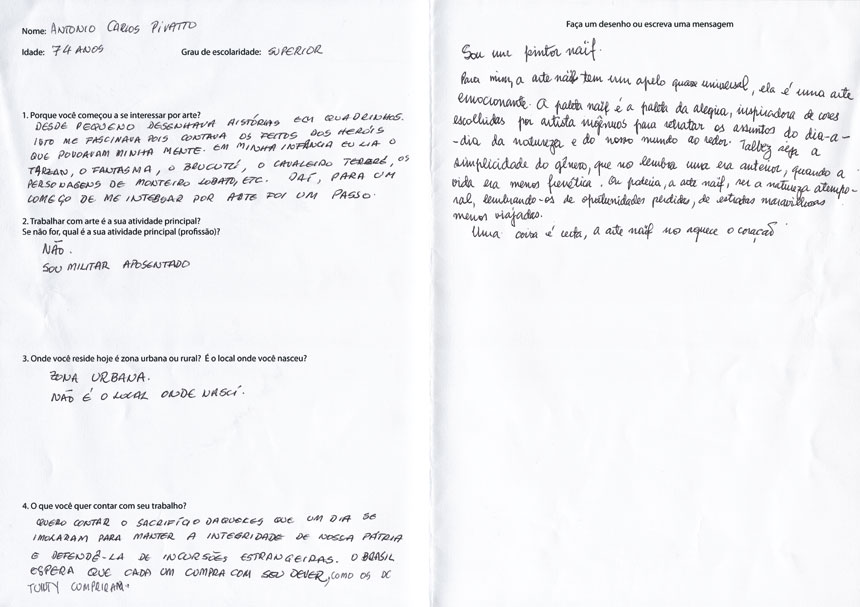 Nome: ANTONIO CARLOS PIVATTO
Idade: 74 ANOS Grau de escolaridade: SUPERIOR
1. Porque você começou a se interessar por arte?
DESDE PEQUENO DESENHAVA HISTÓRIAS EM QUADRINHOS.
ISTO ME FASCINAVA POIS CONTAVA OS FEITOS DOS HERÓIS
QUE POVOAVAM MINHA MENTE. EM MINHA INFÂNCIA EU LIA O
TARZAN, O FANTASMA, O BRUCUTÚ, O CAVALEIRO NEGRO, OS
PERSONAGENS DE MONTEIRO LOBATO, ETC. DAÍ, PARA UM
COMEÇO DE ME INTEGRAR POR ARTE FOI UM PASSO.
2. Trabalhar com arte é a sua atividade principal?
Se não for, qual é a sua atividade principal (profissão)?
NÃO.
SOU MILITAR APOSENTADO
3. Onde você reside hoje é zona urbana ou rural? É o local onde você nasceu?
ZONA URBANA.
NÃO É O LOCAL ONDE NASCI.
4. O que você quer contar com seu trabalho?
QUERO CONTAR O SACRIFÍCIO DAQUELES QUE UM DIA SE
IMOLARAM PARA MANTER A INTEGRIDADE DE NOSSA PÁTRIA
E DEFENDÊ-LA DE INCURSÕES ESTRANGEIRAS. O BRASIL
ESPERA QUE CADA UM CUMPRA COM SEU DEVER, COMO OS DE
CUMPRIRAM.
Faça um desenho ou escreva uma mensagem
Sou um pintor naïf.
Para mim, a arte naïf tem um apelo quase universal, ela é uma arte
emocionante. A paleta naïf é a paleta da alegria, inspiradora de cores
escolhidas por artista ingênuos para retratar os assuntos do dia-a-
-dia da natureza e do nosso mundo ao redor. Talvez seja a
simplicidade do gênero, que nos lembra uma era anterior, quando a
vida era menos frenética. Ou poderia, a arte naïf, ser a natureza atempo-
ral, lembrando-os de oportunidades perdidas, de estradas maravilhosas
menos viajadas.
Uma coisa é certa, a arte naïf nos aquece o coração